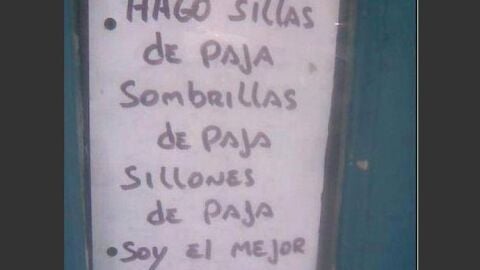 • HAGO SILLAS
de PAJA
SOMBRILLAS
de PAJA
SILLONES
de PAJA
• SOY El MEJOR